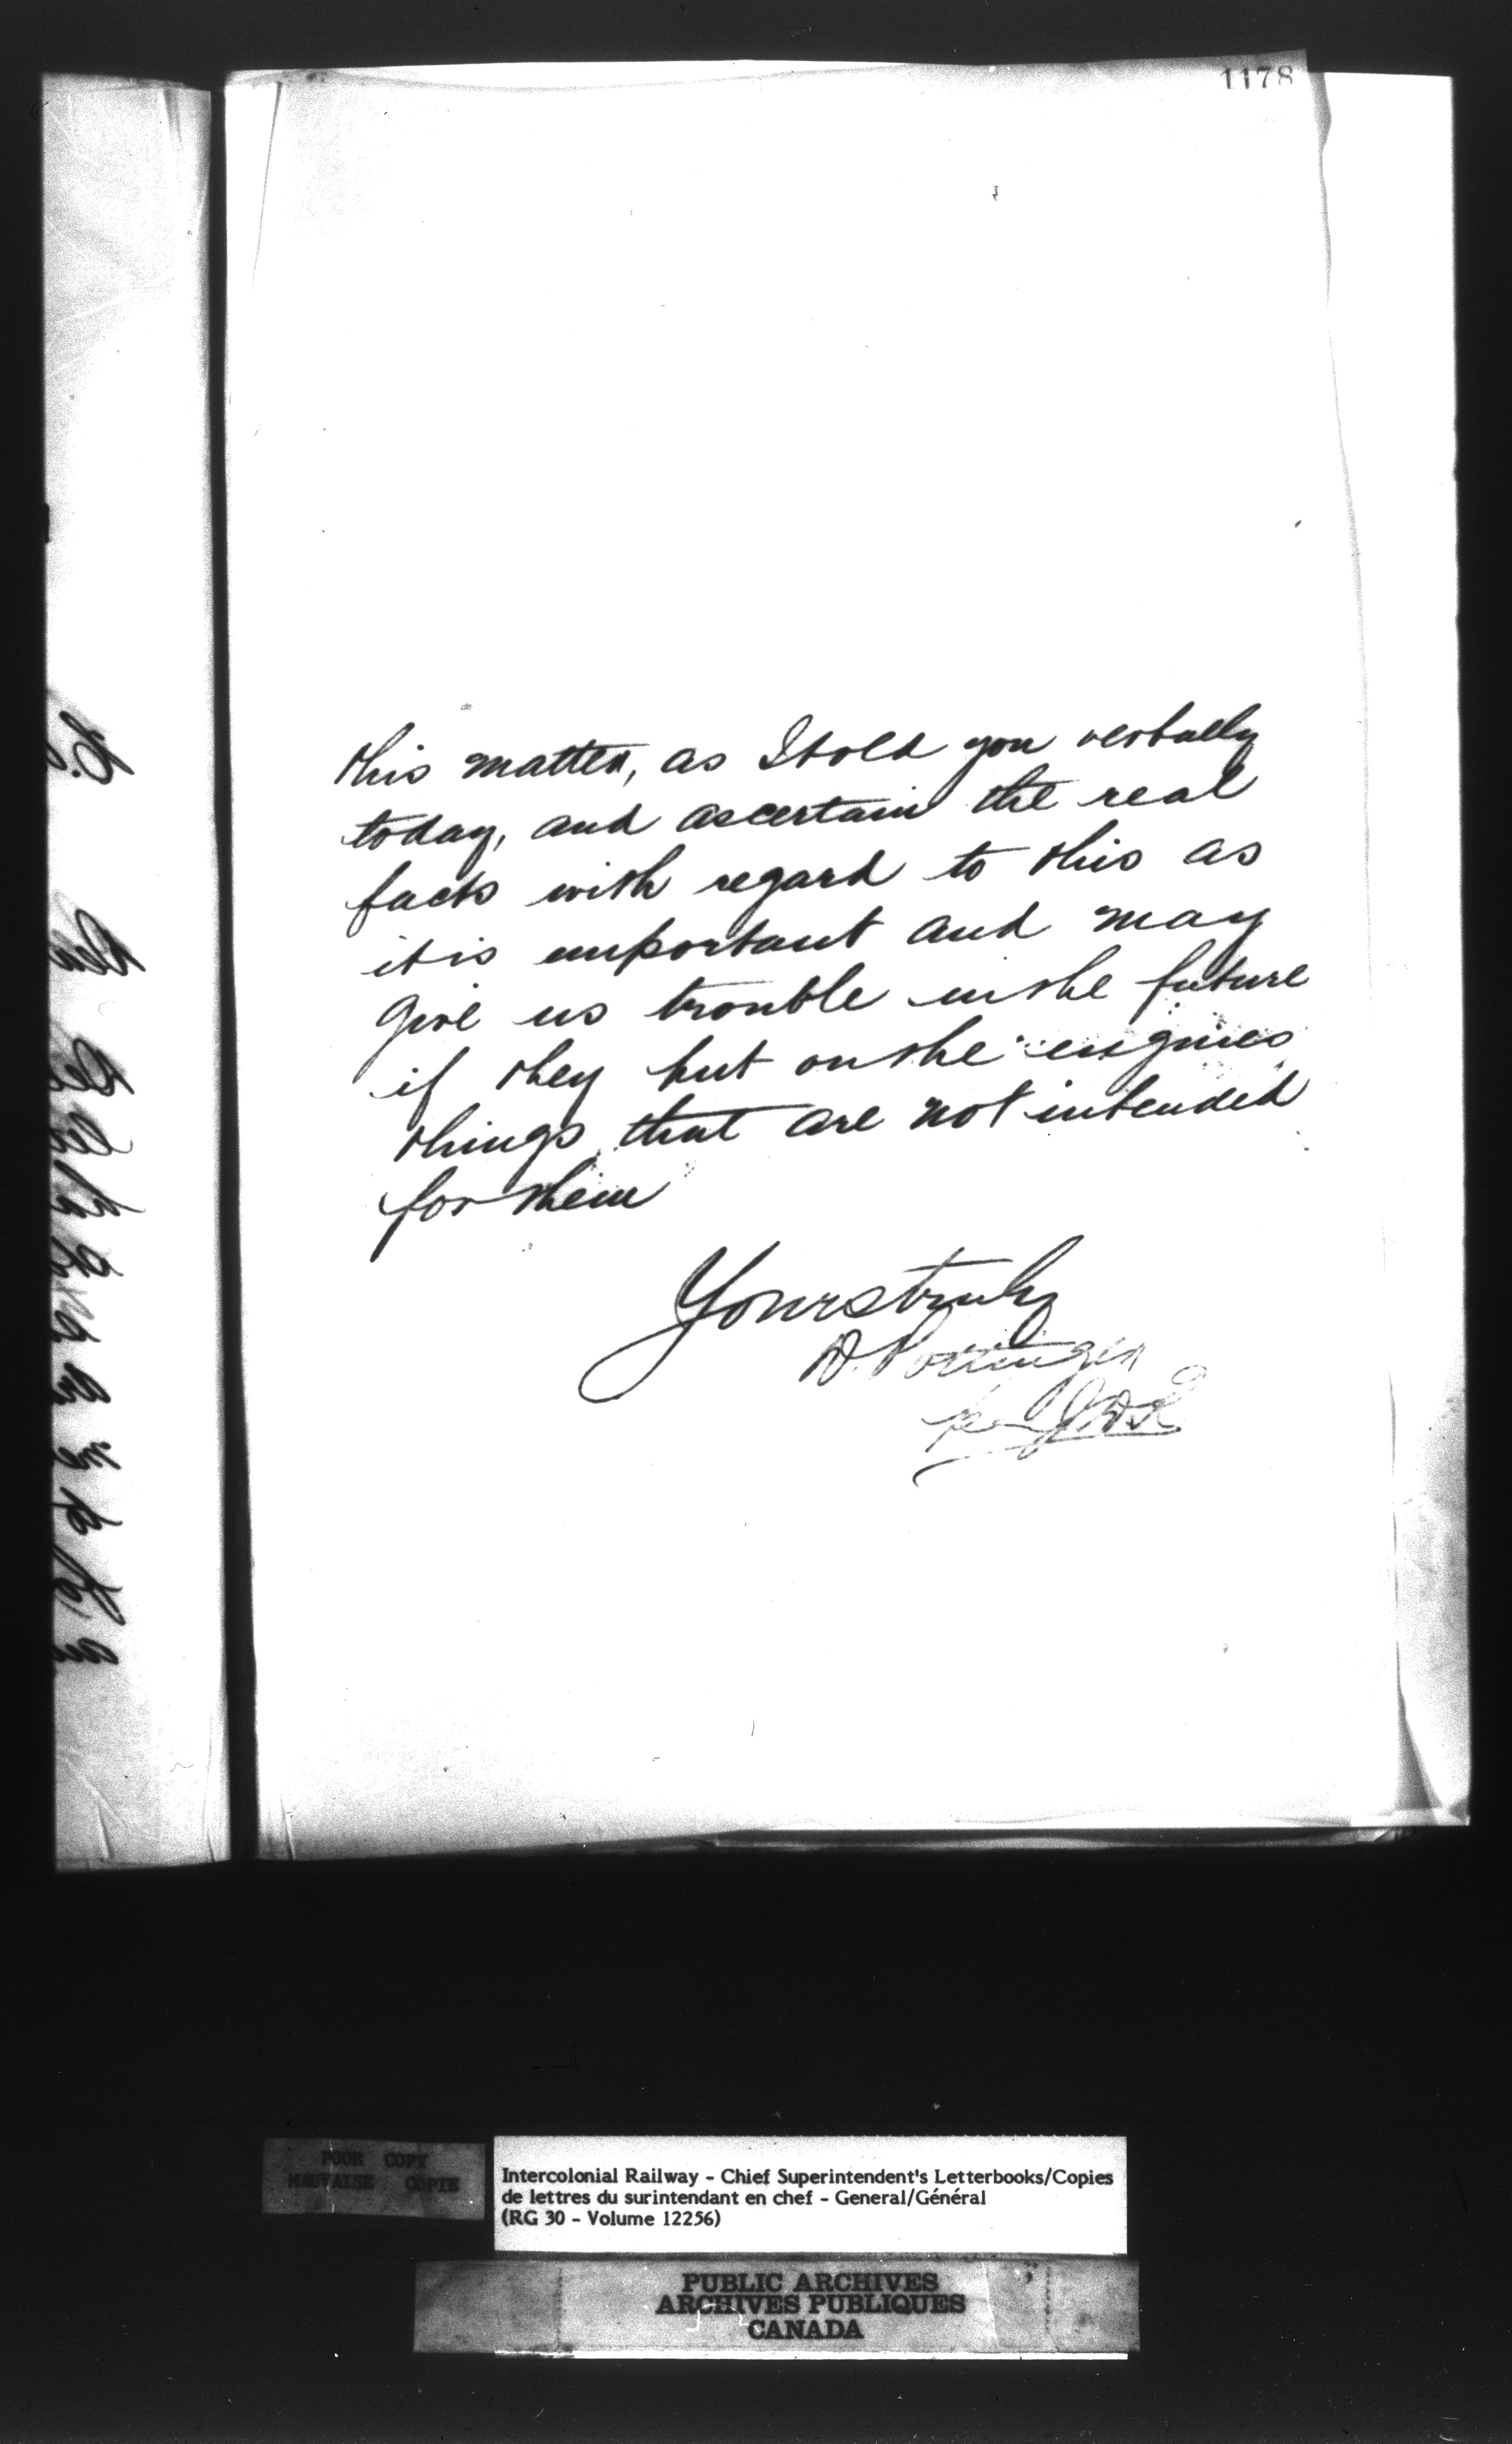 1178
this matter, as I told you verbally
today, and ascertain the real
facts with regard to this as
it is important and may
give us trouble in the future
if they put on the engines
things that are not intended
for them
Yours truly
D. Pottinger
per
POOR COPY
MAUVAISE COPIE
Intercolonial Railway - Chief Superintendent's Letterbooks/Copies
de lettres du surintendant en chef - General/Général
(RG 30 - Volume 12256)
PUBLIC ARCHIVES
ARCHIVES PUBLIQUES
CANADA